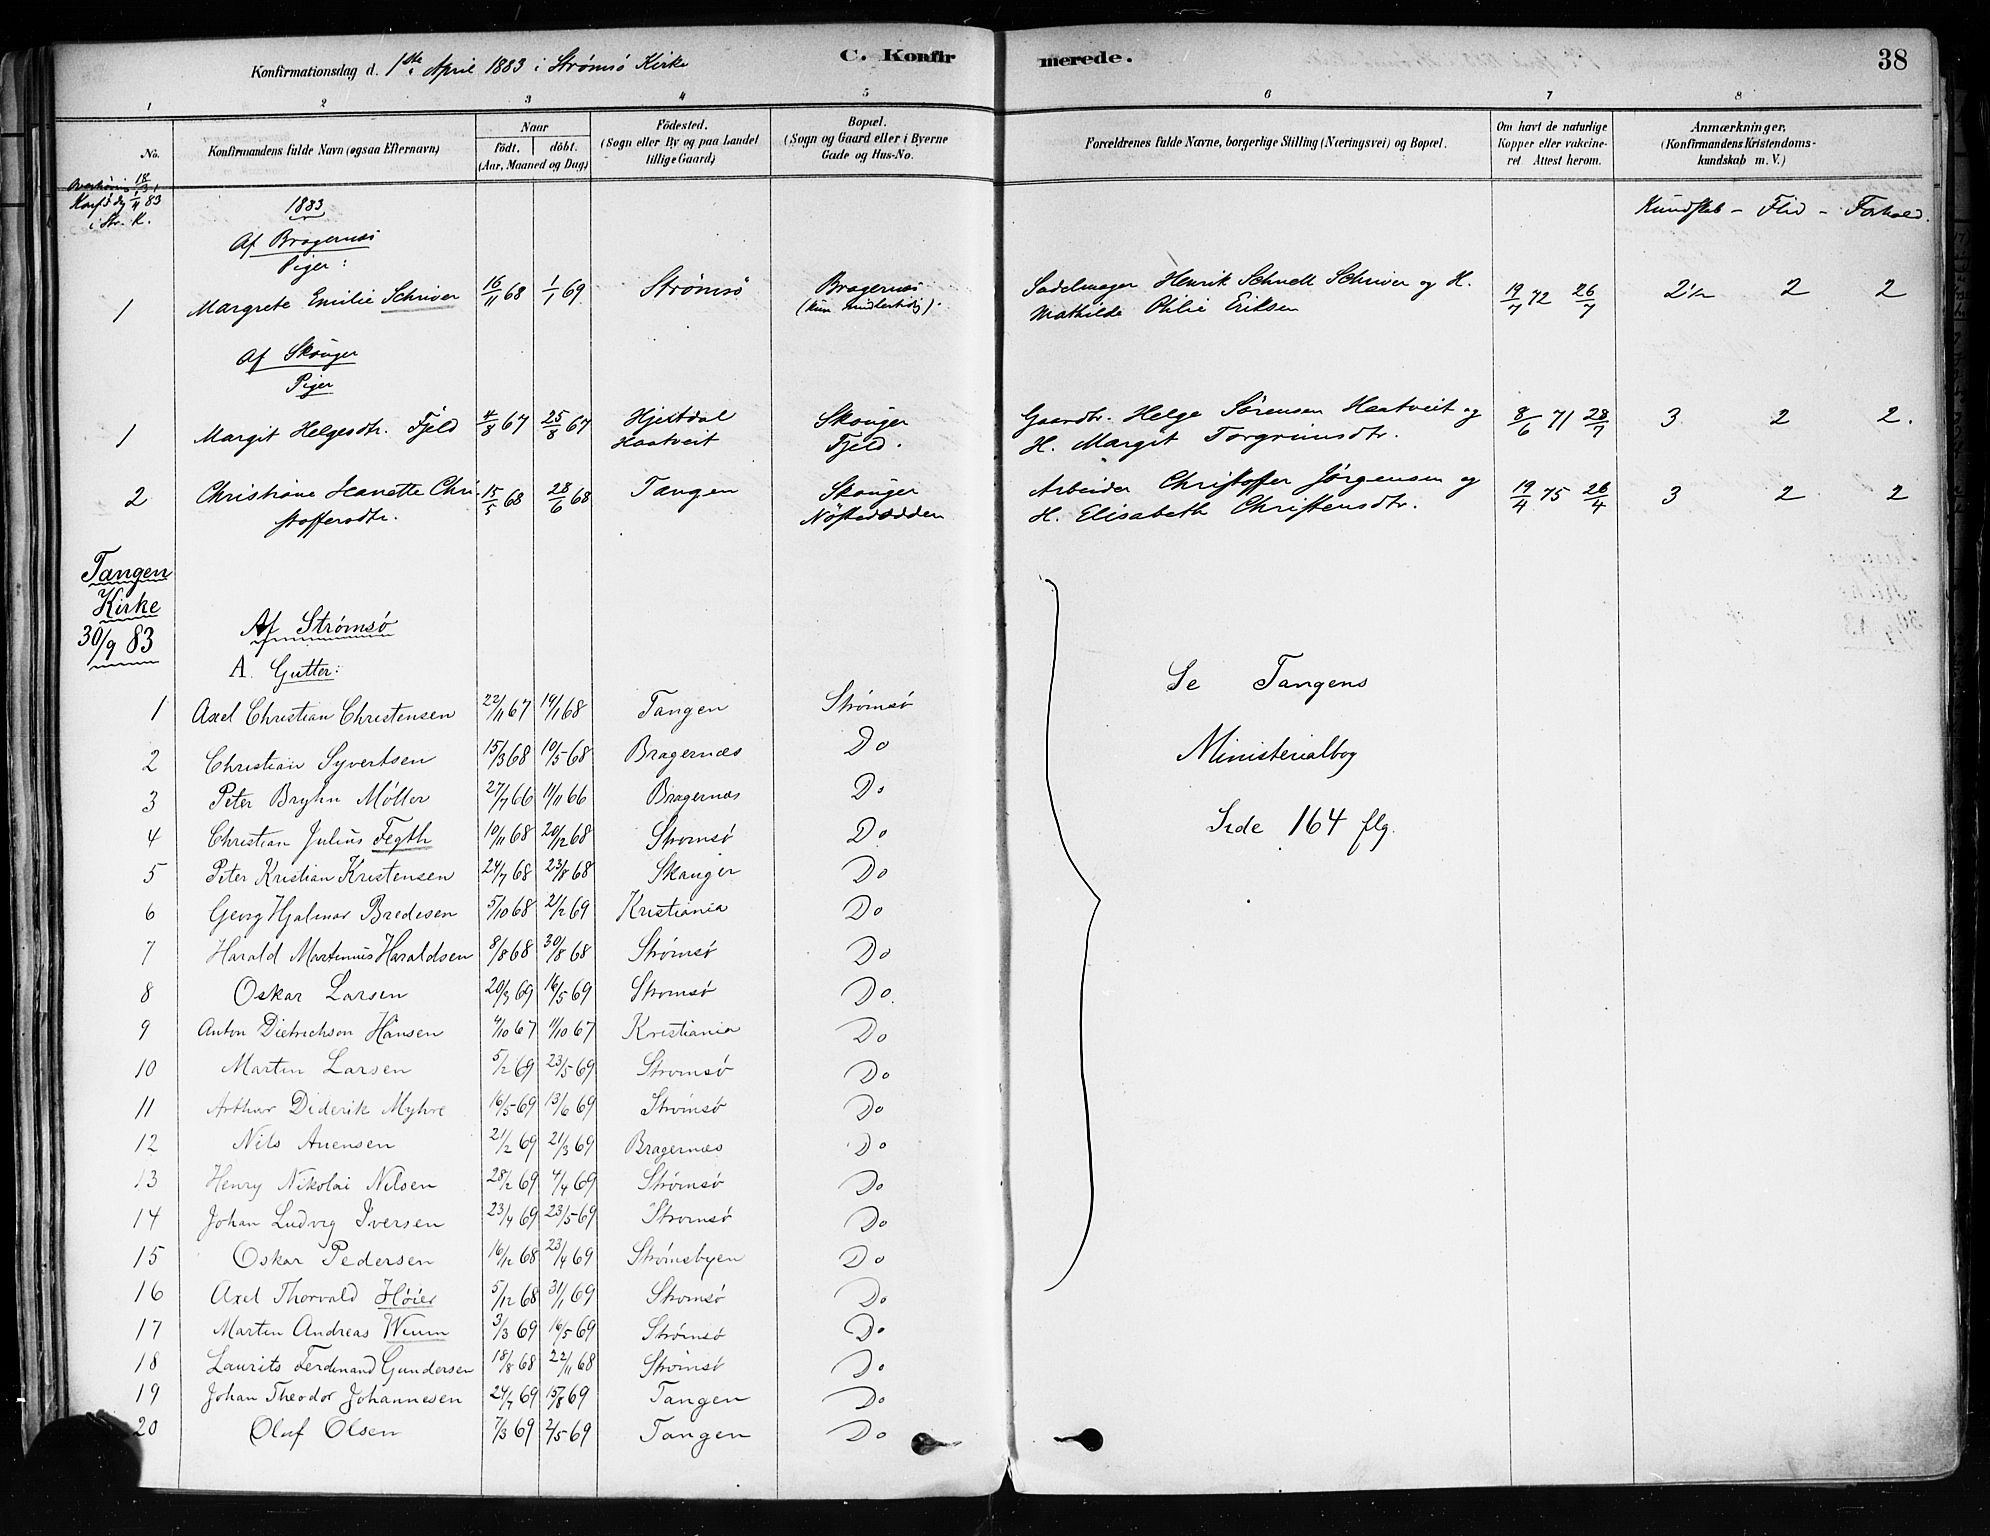 Konfirmationsdag d. 1ste April 1883 i Strømsø Kirke C. Konfirmerede. 38
1 2 3 4 5 6 7 8
No.
Konfirmandens fulde Navn (ogsaa Efternavn)
Naar
født. døbt.
(Aar, Maaned og Dag)
Fødested.
(Sogn eller By og paa Landet
tillige Gaard)
Bopæl.
(Sogn og Gaard eller i Byerne
Gade og Hus-No.
Forældrenes fulde Navne, borgerlige Stilling (Næringsvei) og Bopæl.
Om havt de naturlige
Kopper eller vakcine-
ret. Attest herom.
Anmærkninger,
(Konfirmandens Kristendoms-
kundskab m. V.)
Overhøring 18/3
Konf.dg 1/4 83
i Str. K.
1883
Kundskab – Flid – Forhold.
Af Bragernæs
Piger:
1 Margrete Emilie Schriver 16/11 68 1/1 69 Strømsø Bragernæs (kun midlertidig). Sadelmager Henrik Schnell Schriver og H. Mathilde Otilie Eriksen 19/7 72 26/7 2½ 2 2
Af Skouger
Piger
1 Margit Helgesdtr. Fjeld 4/8 67 25/8 67 Hjertdal Haatveit Skouger Fjeld. Gaardbr. Helge Sørensen Haatveit og H. Margit Torgrimsdtr. 8/6 71 28/7 3 2 2.
2 Christiane Jeanette Christoffersdtr. 15/5 68 28/6 68 Tangen Skouger Nøstedødden Arbeider Christoffer Jørgensen og H. Elisabeth Christensdtr. 19/4 75 26/4 3 2 2
Tangen
Kirke
30/9 83
Af Strømsø
A. Gutter:
Se Tangens
Ministerialbog
Side 164 flg.
1 Axel Christian Christensen 22/11 67 19/1 68 Tangen Strømsø
2 Christian Syvertsen 15/3 68 10/5 68 Bragernæs Do
3 Peter Bryhn Möller 27/7 66 11/11 66 Bragernæs Do
4 Christian Julius Fegth 10/11 68 20/12 68 Strømsø Do
5 Peter Kristian Kristensen 24/7 68 23/8 68 Skouger Do
6 Georg Hjalmar Bredesen 5/10 68 21/2 69 Kristiania Do
7 Harald Martinius Haraldsen 8/8 68 30/8 68 Strømsø Do
8 Oskar Larsen 20/3 69 16/5 69 Strømsø Do.
9 Anton Dietrichson Hansen 4/10 67 11/10 67 Kristiania Do
10 Martin Larsen 5/2 69 23/5 69 Strømsø Do
11 Arthur Diderik Myhre 16/5 69 13/6 69 Strömsø Do
12 Nils Auensen 21/2 69 21/3 69 Bragernæs Do
13 Henry Nikolai Nilsen 28/2 69 4/4 69 Strømsø Do
14 Johan Ludvig Iversen 23/4 69 23/5 69 Strømsø Do
15 Oskar Pedersen 16/12 68 23/4 69 Strømsbyen Do
16 Axel Thorvald Höier 5/12 68 31/1 69 Strømsø Do
17 Martin Andreas Wium 3/3 69 16/5 69 Strømsø Do
18 Laurits Ferdinand Gundersen 18/8 68 22/11 68 Strömsø Do
19 Johan Theodor Johannesen 24/7 69 15/8 69 Tangen Do
20 Oluf Olsen 7/3 69 2/5 69 Tangen Do